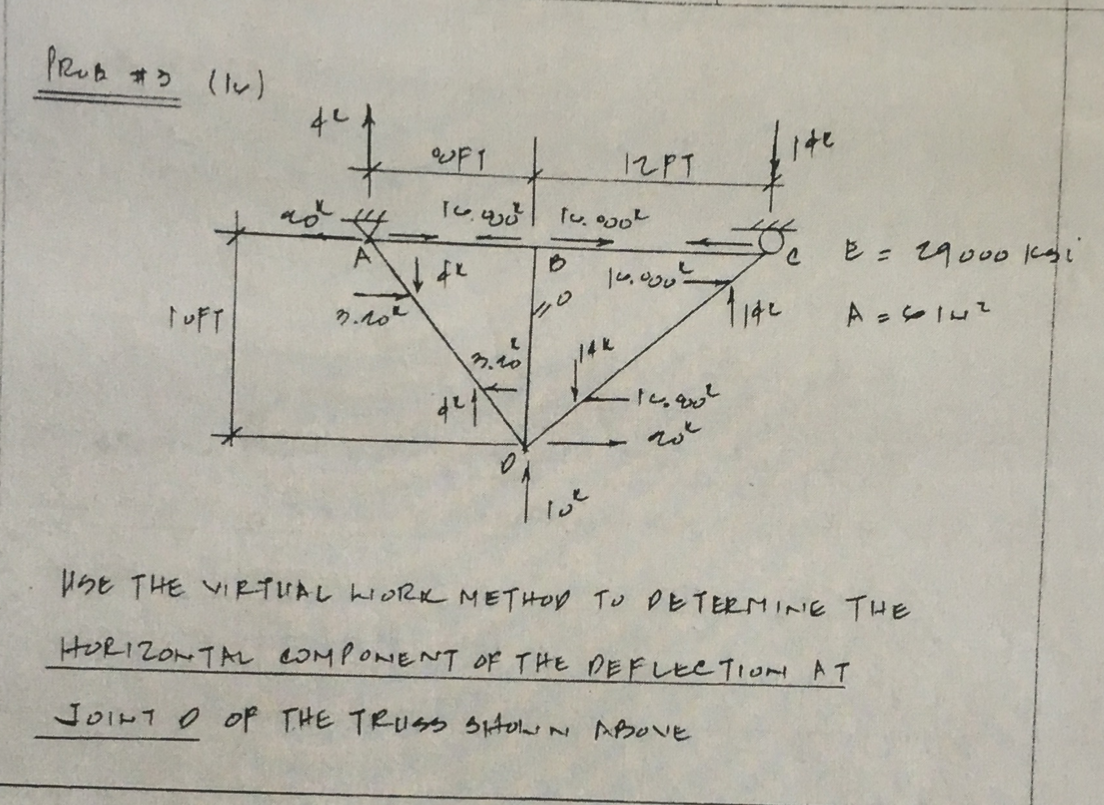 PROB #3 (10)
4K
14K
8 FT
12 FT
20K
16.800K
16.800K
A
B
C
E = 29000 ksi
4K
16.800K
14K
3.20K
10 FT
0
A = 6 IN²
3.20K
14K
4K
16.800K
20K
D
10K
USE THE VIRTUAL WORK METHOD TO DETERMINE THE
HORIZONTAL COMPONENT OF THE DEFLECTION AT
JOINT D OF THE TRUSS SHOWN ABOVE